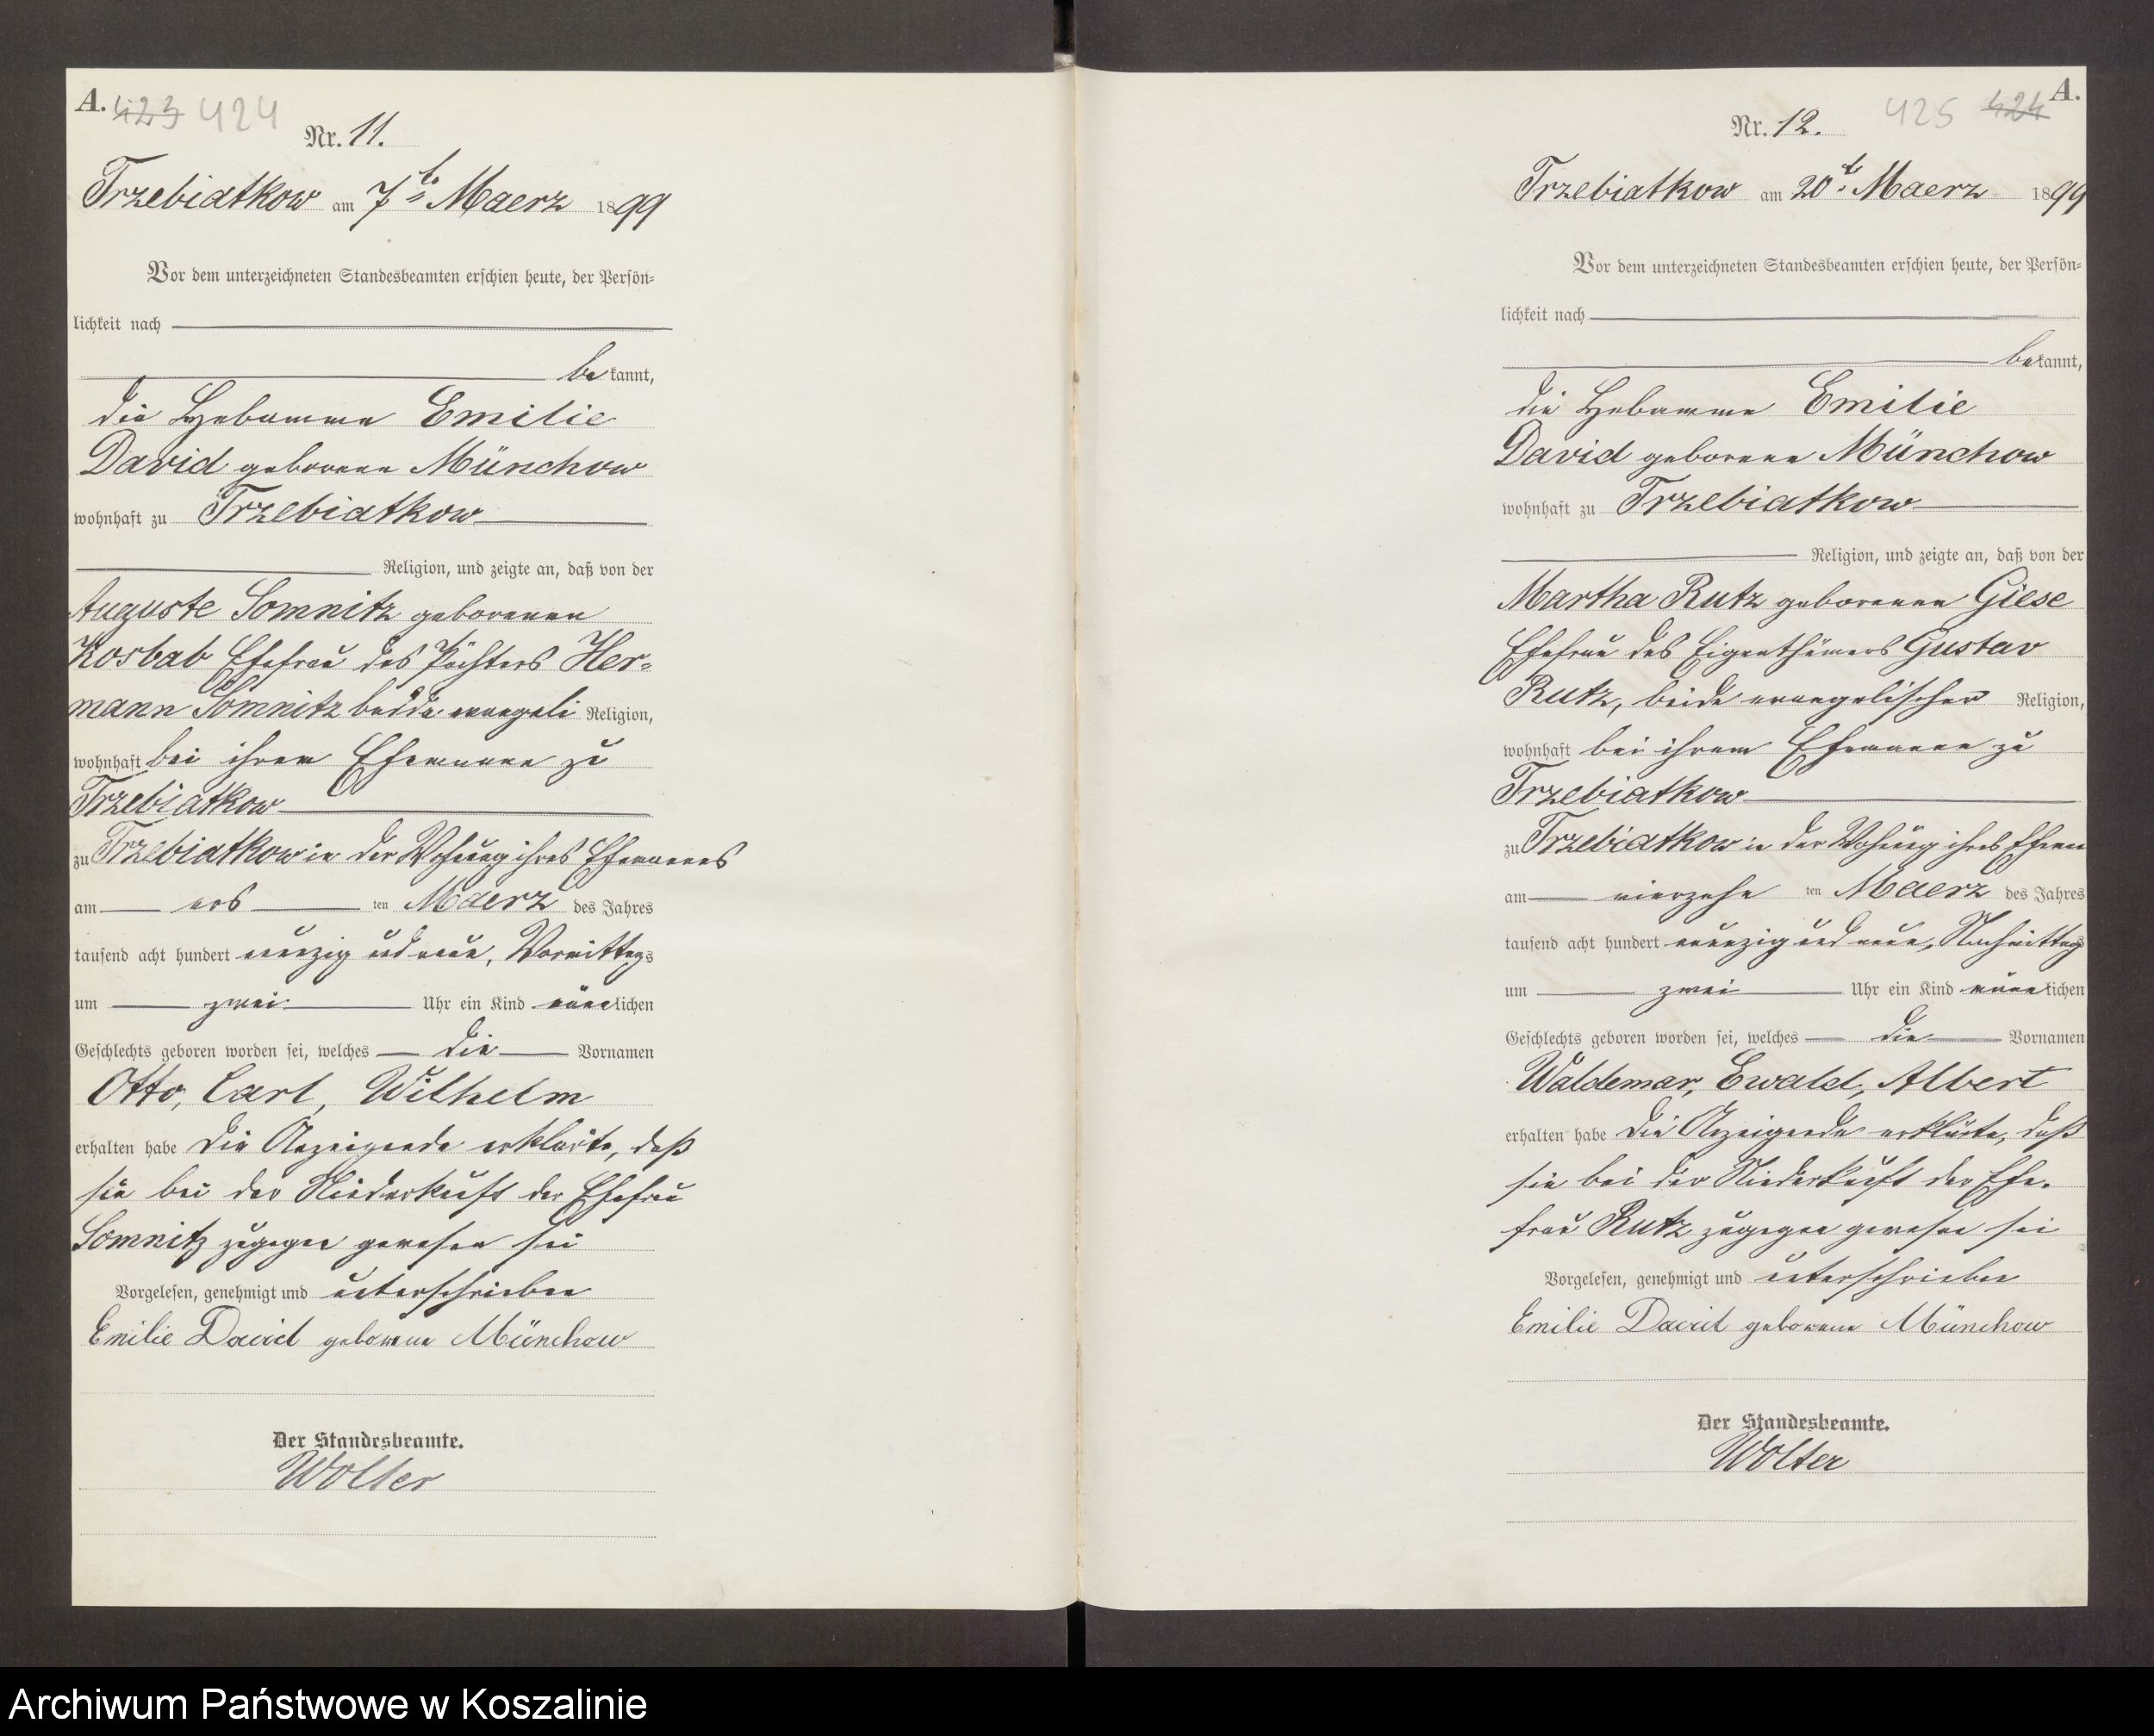 A. 423 424
Nr. 11.
Trzebiatkow am 7te Maerz 1899
Vor dem unterzeichneten Standesbeamten erschien heute, der Persön=
lichkeit nach
bekannt,
die Hebamme Emilie
David geborene Münchow
wohnhaft zu Trzebiatkow
Religion, und zeigte an, daß von der
Auguste Somnitz geborenen
Kosbab Ehefrau des Pächters Her=
mann Somnitz beide evangeli Religion,
wohnhaft bei ihrem Ehemanne zu
Trzebiatkow
zu Trzebiatkow in der Wohnung ihres Ehemannes
am ers ten Maerz des Jahres
tausend acht hundert neunzig und neun, Vormittags
um zwei Uhr ein Kind männlichen
Geschlechts geboren worden sei, welches die Vornamen
Otto, Carl, Wilhelm
erhalten habe Die Anzeigende erklärte, daß
sie bei der Niederkunft der Ehefrau
Somnitz zugegen gewesen sei
Vorgelesen, genehmigt und unterschrieben
Emilie David geborene Münchow
Der Standesbeamte.
Wolter
425 424 A.
Nr. 12.
Trzebiatkow am 20te Maerz 1899
Vor dem unterzeichneten Standesbeamten erschien heute, der Persön=
lichkeit nach
bekannt,
die Hebamme Emilie
David geborene Münchow
wohnhaft zu Trzebiatkow
Religion, und zeigte an, daß von der
Martha Rutz geborenen Giese
Ehefrau des Eigenthümers Gustav
Rutz, beide evangelischer Religion,
wohnhaft bei ihrem Ehemanne zu
Trzebiatkow
zu Trzebiatkow in der Wohnung ihres Ehema
am vierzehn ten Maerz des Jahres
tausend acht hundert neunzig und neun, Nachmittags
um zwei Uhr ein Kind männlichen
Geschlechts geboren worden sei, welches die Vornamen
Waldemar, Ewald, Albert
erhalten habe Die Anzeigende erklärte, daß
sie bei der Niederkunft der Ehe=
frau Rutz zugegen gewesen sei
Vorgelesen, genehmigt und unterschrieben
Emilie David geborene Münchow
Der Standesbeamte.
Wolter
Archiwum Państwowe w Koszalinie